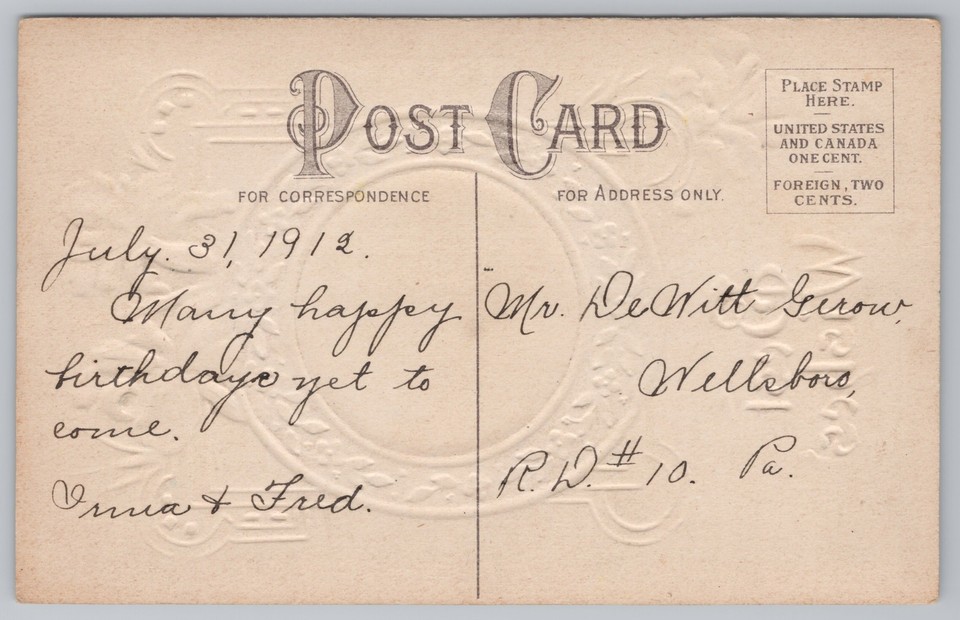 POST CARD
PLACE STAMP
HERE.
UNITED STATES
AND CANADA
ONE CENT.
FOREIGN, TWO
CENTS.
FOR CORRESPONDENCE
FOR ADDRESS ONLY.
July. 31, 1912.
Many happy
birthdays yet to
come.
Irma & Fred.
Mr. DeWitt Gerow,
Wellsboro,
R.D. # 10. Pa.